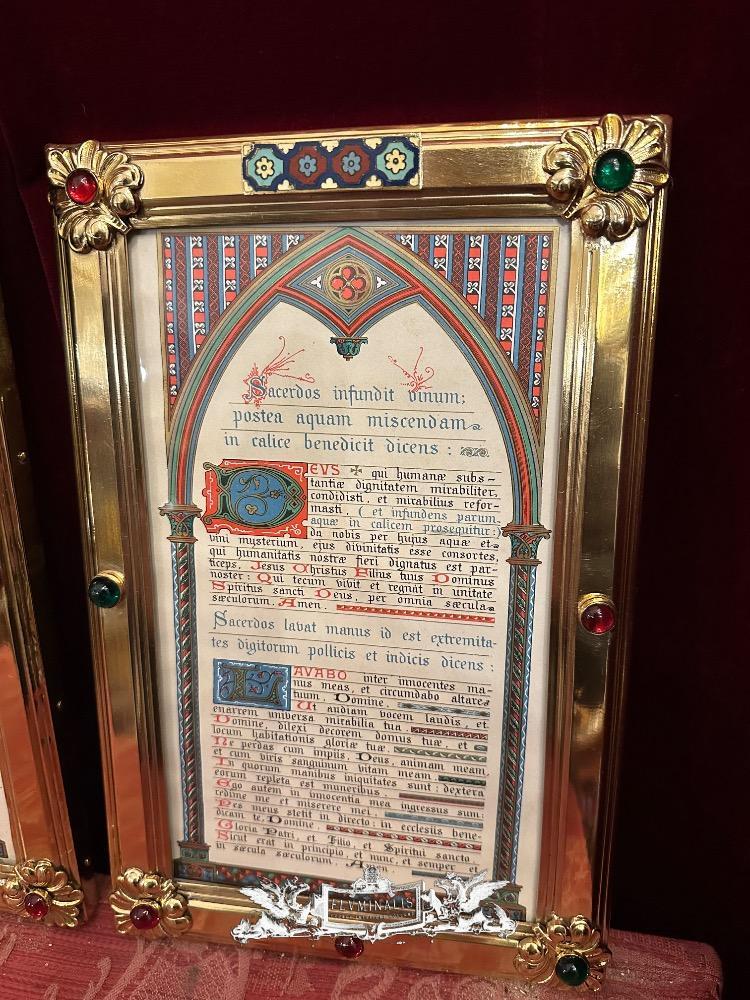 Sacerdos infundit vinum;
postea aquam miscendam
in calice benedicit dicens :
DEVS ✠ qui humanæ subs-
tantiæ dignitatem mirabiliter,
condidisti, et mirabilius refor-
masti, ( et infundens parum
aquæ in calicem prosequitur:)
da nobis per hujus aquæ et
vini mysterium, ejus divinitatis esse consortes,
qui humanitatis nostræ fieri dignatus est par-
ticeps, Jesus Christus Filius tuus Dominus
noster : Qui tecum vivit et regnat in unitate
Spiritus sancti Deus, per omnia sæcula
sæculorum. Amen.
Sacerdos lavat manus id est extremita-
tes digitorum pollicis et indicis dicens :
LAVABO inter innocentes ma-
nus meas, et circumdabo altare
tuum Domine.
Ut audiam vocem laudis, et
enarrem universa mirabilia tua.
Domine, dilexi decorem domus tuæ, et
locum habitationis gloriæ tuæ.
Ne perdas cum impiis, Deus, animam meam,
et cum viris sanguinum vitam meam.
In quorum manibus iniquitates sunt : dextera
eorum repleta est muneribus.
Ego autem in innocentia mea ingressus sum:
redime me et miserere mei.
Pes meus stetit in directo : in ecclesiis bene-
dicam te, Domine.
Gloria Patri, et Filio, et Spiritui sancto.
Sicut erat in principio, et nunc, et semper et
in sæcula sæculorum. Amen.
FLVMINALIS